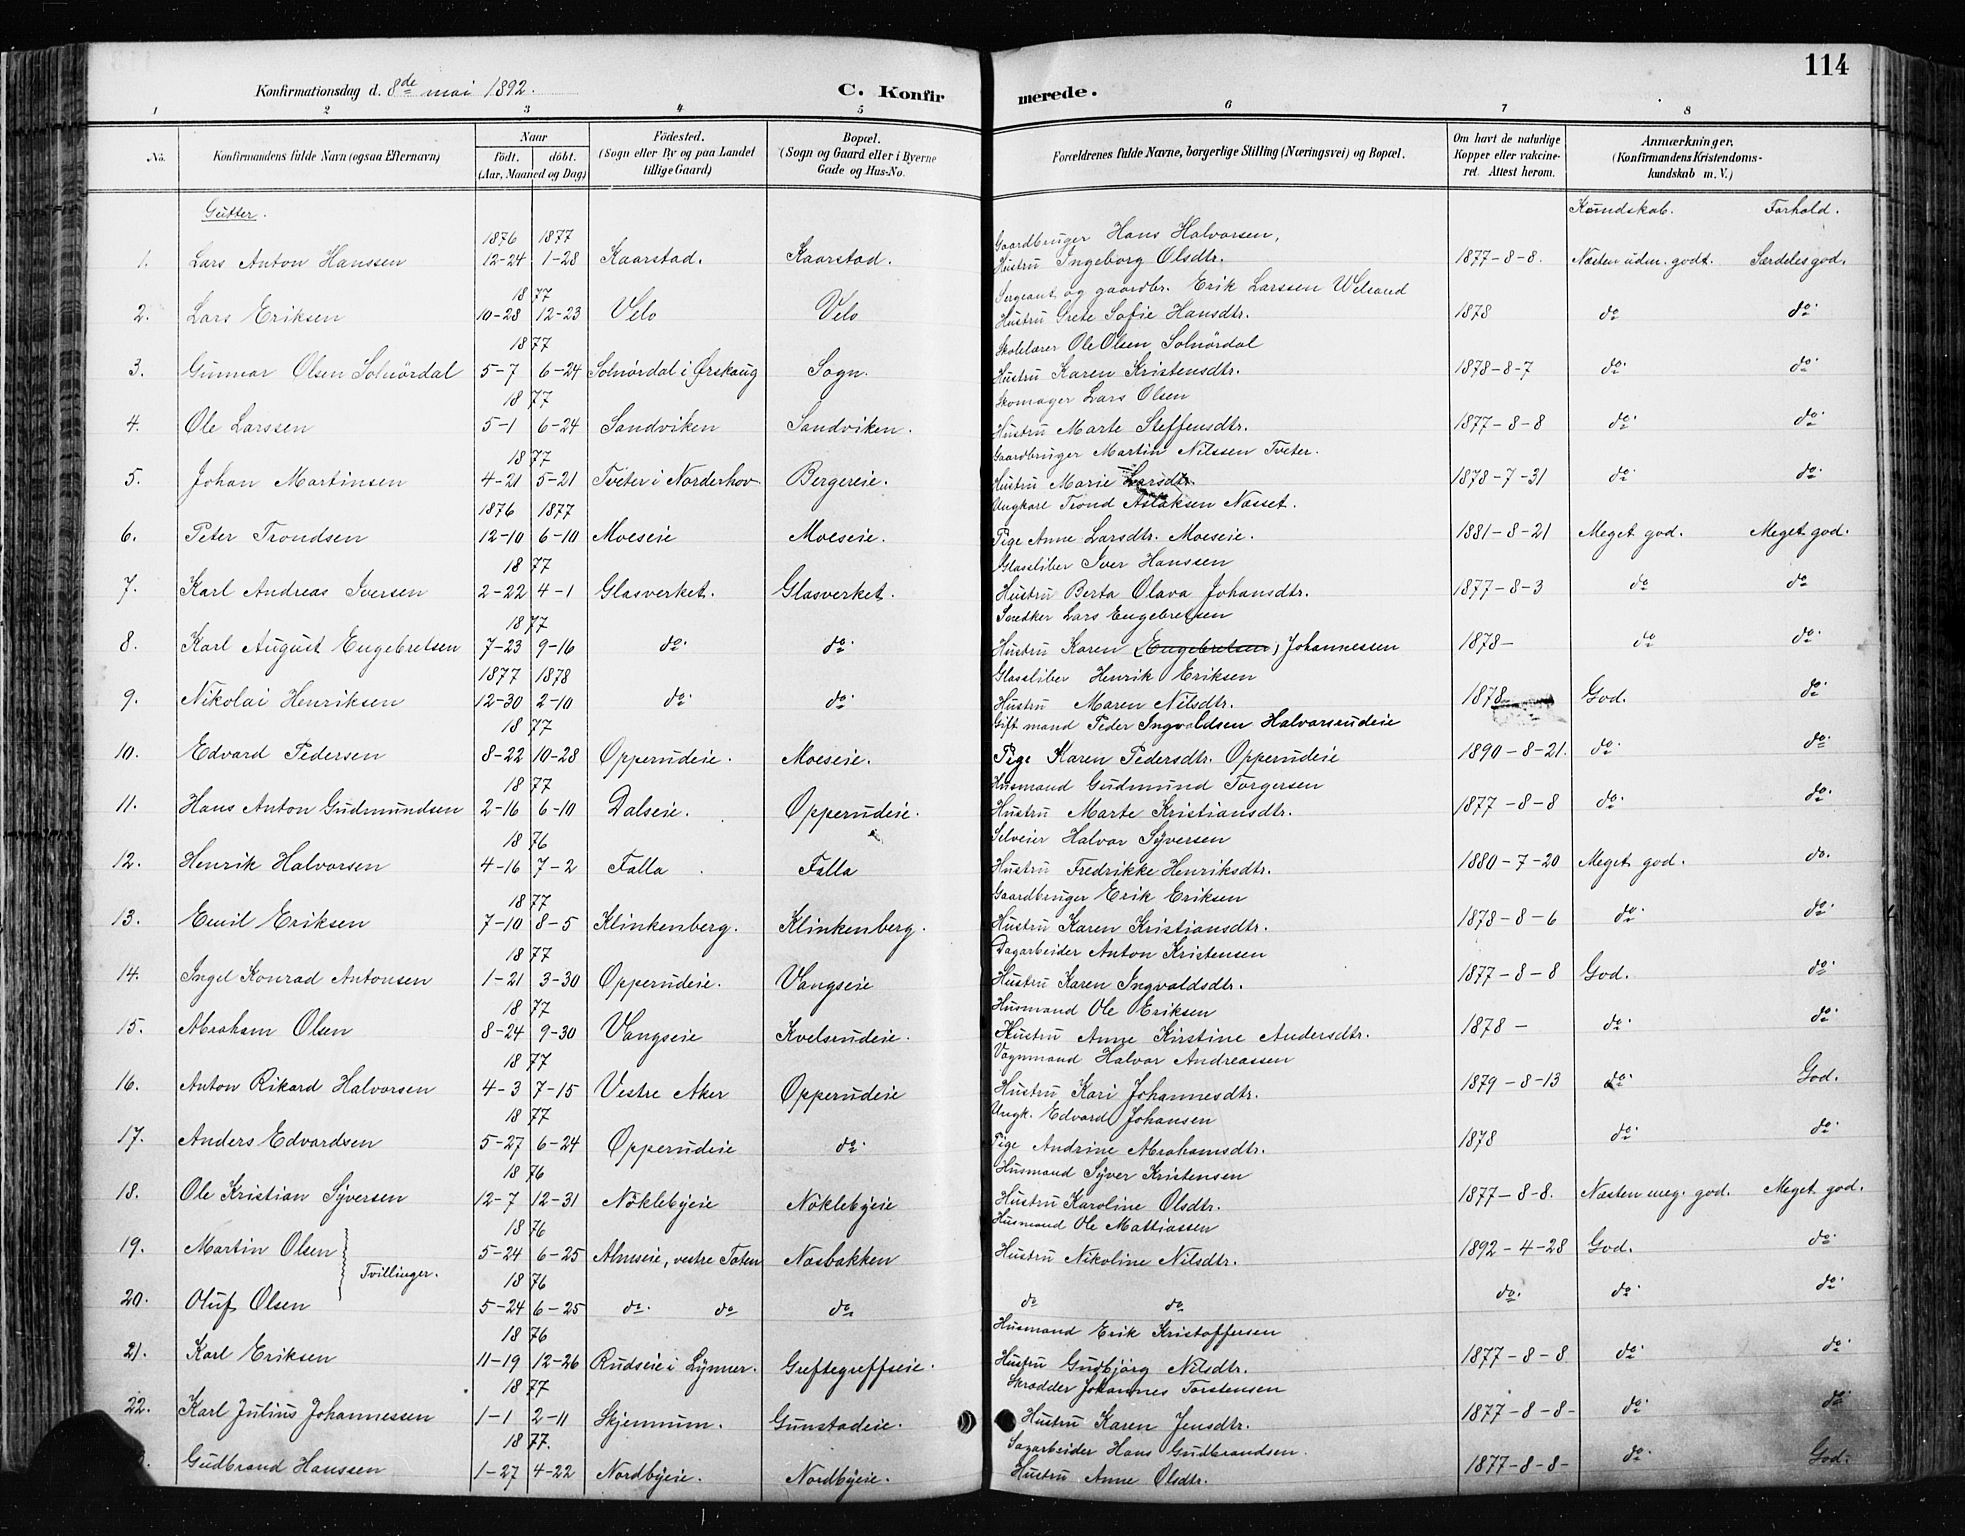 114
Konfirmationsdag d. 8de mai 1892.
C. Konfirmerede.
1 2 3 4 5 6 7 8
No. Konfirmandens fulde Navn (ogsaa Efternavn) Naar födt. döbt. (Aar, Maaned og Dag) Födested. (Sogn eller By og paa Landet tillige Gaard) Bopæl. (Sogn og Gaard eller i Byerne Gade og Hus-No. Forældrenes fulde Navne, borgerlige Stilling (Næringsvei) og Bopæl. Om havt de naturlige Kopper eller vakcineret. Attest herom. Anmærkninger. (Konfirmandens Kristendomskundskab m. V.)
Gutter. Kundskab. Forhold.
1876 1877 Gaardbruger Hans Halvorsen,
1. Lars Anton Hanssen 12-24 1-28 Kaarstad. Kaarstad. Hustru Ingeborg Olsdtr. 1877-8-8. Næsten udm. godt. Særdeles god.
1877 Sergeant og gaardbr. Erik Larssen Velsand
2. Lars Eriksen 10-28 12-23 Velo Velo Hustru Grete Sofie Hansdtr. 1878 do do
1877 Skolelærer Ole Olsen Solnördal
3. Gunnar Olsen Solnördal 5-7 6-24 Solnördal i Ørskaug Sogn. Hustru Karen Kristensdtr. 1878-8-7 do do
1877 Skomager Lars Olsen
4. Ole Larssen 5-1 6-24 Sandviken Sandviken. Hustru Marte Steffensdtr. 1877-8-8 do do
1877 Gaardbruger Martin Nilssen Tveter.
5. Johan Martinsen 4-21 5-21 Tveter i Norderhov Bergereie. Hustru Marie Larsdtr. 1878-7-31 do do
1876 1877 Ungkarl Trond Aslaksen Næsset.
6. Peter Trondsen 12-10 6-10 Moeseie Moeseie. Pige Anne Larsdtr. Moeseie. 1881-8-21 Meget god. Meget god.
1877 Glassliber Iver Hanssen
7. Karl Andreas Iversen 2-22 4-1 Glasverket. Glasverket. Hustru Berta Olava Johansdtr. 1877-8-3 do do
1877 Snedker Lars Engebretsen
8. Karl August Engebretsen 7-23 9-16 do. do. Hustru Karen (Engebretsen) Johannessen 1878- do do.
1877 1878 Glassliber Henrik Eriksen
9. Nikolai Henriksen 12-30 2-10 do. do. Hustru Maren Nilsdtr. 1878 God. do
1877 Gift mand Peder Ingvaldsen Halvorsrudeie
10. Edvard Pedersen 8-22 10-28 Opperudeie. Moeseie. Pige Karen Pedersdtr. Opperudeie 1890-8-21. do. do.
1877 Husmand Gudmund Torgersen
11. Hans Anton Gudmundsen 2-16 6-10 Dalseie. Opperudeie. Hustru Marte Kristiansdtr. 1877-8-8 do. do.
1876 Selveier Halvor Syversen
12. Henrik Halvorsen 4-16 7-2 Falla Falla Hustru Fredrikke Henriksdtr. 1880-7-20 Meget god. do.
1877 Gaardbruger Erik Eriksen
13. Emil Eriksen 7-10 8-5 Klinkenberg. Klinkenberg. Hustru Karen Kristiansdtr. 1878-8-6 do. do.
1877 Dagarbeider Anton Kristensen
14. Ingel Konrad Antonsen 1-21 3-30 Opperudeie. Vangseie Hustru Karen Ingvaldsdtr. 1877-8-8 God. do.
1877 Husmand Ole Eriksen
15. Abraham Olsen 8-24 9-30 Vangseie Kvelsrudeie. Hustru Anne Kirstine Andersdtr. 1878- do. do.
1877 Vognmand Halvor Andreassen
16. Anton Rikard Halvorsen 4-3 7-15 Vestre Aker Opperudeie Hustru Kari Johannesdtr. 1879-8-13 do. God.
1877 Ungk. Edvard Johansen
17. Anders Edvardsen 5-27 6-24 Opperudeie do. Pige Andrine Abrahamsdtr. 1878 do. do.
1876 Husmand Syver Kristensen
18. Ole Kristian Syversen 12-7 12-31 Nöklebyeie Nöklebyeie Hustru Karoline Olsdtr. 1877-8-8. Næsten meg. god. Meget god.
1876 Husmand Ole Mattiassen
19. Martin Olsen 5-24 6-25 Almseie, vestre Toten Næsbakken Hustru Nikoline Nilsdtr. 1892-4-28 God. do.
Tvillinger. 1876
20. Oluf Olsen 5-24 6-25 do. do do do do do. do. do.
1876 Husmand Erik Kristoffersen
21. Karl Eriksen 11-19 12-26 Rudseie i Lynner. Greftegreffseie. Hustru Gudbjörg Nilsdtr. 1877-8-8 do. do.
1877 Skrædder Johannes Torstensen
22. Karl Julius Johannessen 1-1 2-11 Skjennum. Gunstadeie. Hustru Karen Jensdtr. 1877-8-8- do do
1877. Sagarbeider Hans Gudbrandsen.
Gudbrand Hanssen 1-27 4-22 Nordbyeie. Nordbyeie. Hustru Anne Olsdtr. 1877-8-8- do God.